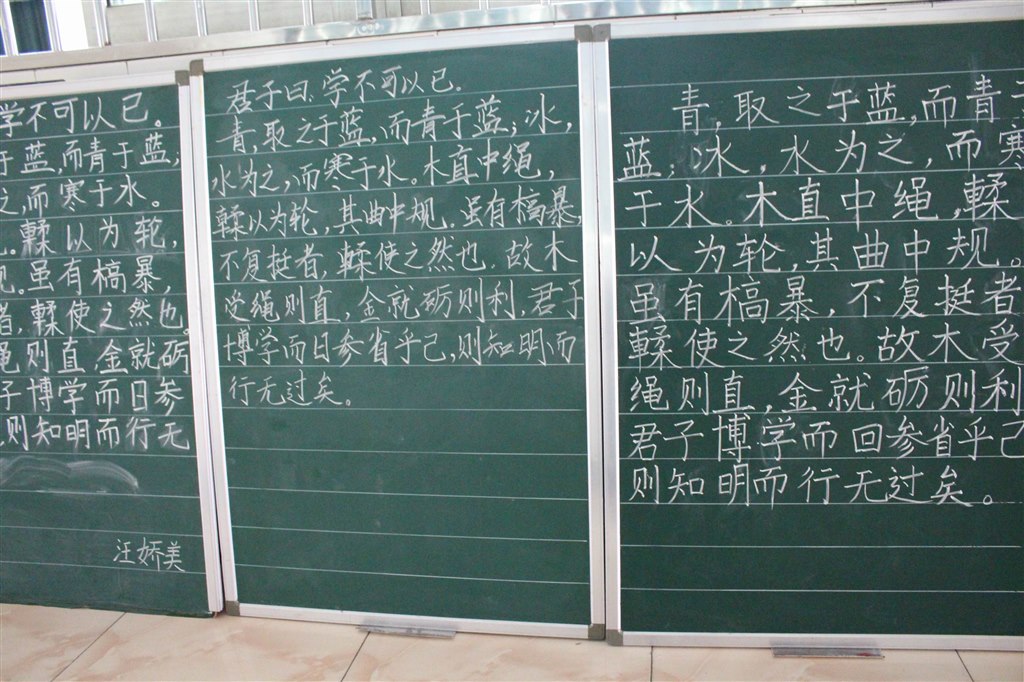 学不可以已。
于蓝,而青于蓝,
之,而寒于水。
。輮以为轮,
规。虽有槁暴,
者,輮使之然也。
绳则直,金就砺
子博学而日参
,则知明而行无
汪娇美
君子曰:学不可以已。
青,取之于蓝,而青于蓝;冰,
水为之,而寒于水。木直中绳,
輮以为轮,其曲中规。虽有槁暴,
不复挺者,輮使之然也。故木
受绳则直,金就砺则利,君子
博学而日参省乎己,则知明而
行无过矣。
青,取之于蓝,而青于
蓝;冰,水为之,而寒
于水。木直中绳,輮
以为轮,其曲中规。
虽有槁暴,不复挺者
輮使之然也。故木受
绳则直,金就砺则利
君子博学而回参省乎己
则知明而行无过矣。